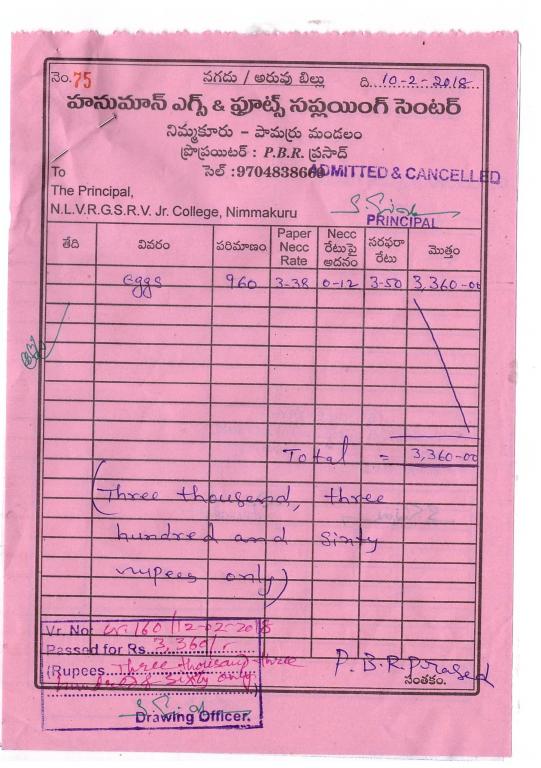 నెం. 75 నగదు / అరువు బిల్లు ది 10-2-2018
హనుమాన్ ఎగ్స్ & ఫ్రూట్స్ సప్లయింగ్ సెంటర్
నిమ్మకూరు - పామర్రు మండలం
ప్రొప్రయిటర్ : P.B.R. ప్రసాద్
To సెల్ : 9704838666 ADMITTED & CANCELLED
The Principal,
N.L.V.R.G.S.R.V. Jr. College, Nimmakuru PRINCIPAL
తేది వివరం పరిమాణం Paper Necc Rate Necc రేటుపై అదనం సరఫరా రేటు మొత్తం
eggs 960 3-38 0-12 3-50 3,360-00
Total = 3,360-00
(Three thousand, three
hundred and sixty
rupees only)
Vr. No: 160/12-02-2018
Passed for Rs. 3,360/-
(Rupees Three thousand three
hundred & sixty only)
P.B.R Prasad
సంతకం.
Drawing Officer.